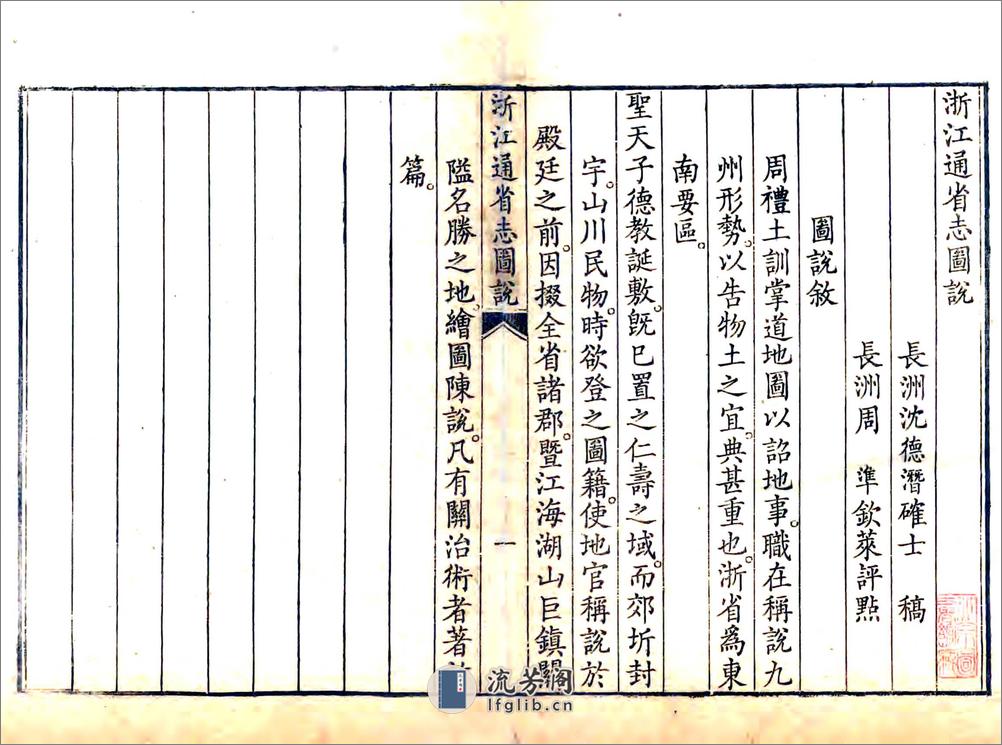 浙江通省志圖說
長洲沈德潛確士 稿
長洲周 準欽萊評點
圖說敘
周禮土訓掌道地圖以詔地事。職在稱說九
州形勢。以告物土之宜。典甚重也。浙省爲東
南要區。
聖天子德教誕敷。旣已置之仁壽之域。而郊圻封
宇。山川民物。時欲登之圖籍。使地官稱說於
殿廷之前。因掇全省諸郡。暨江海湖山巨鎮關
浙江通省志圖說
一
隘名勝之地。繪圖陳說。凡有關治術者著
篇。
流芳閣
lfglib.cn